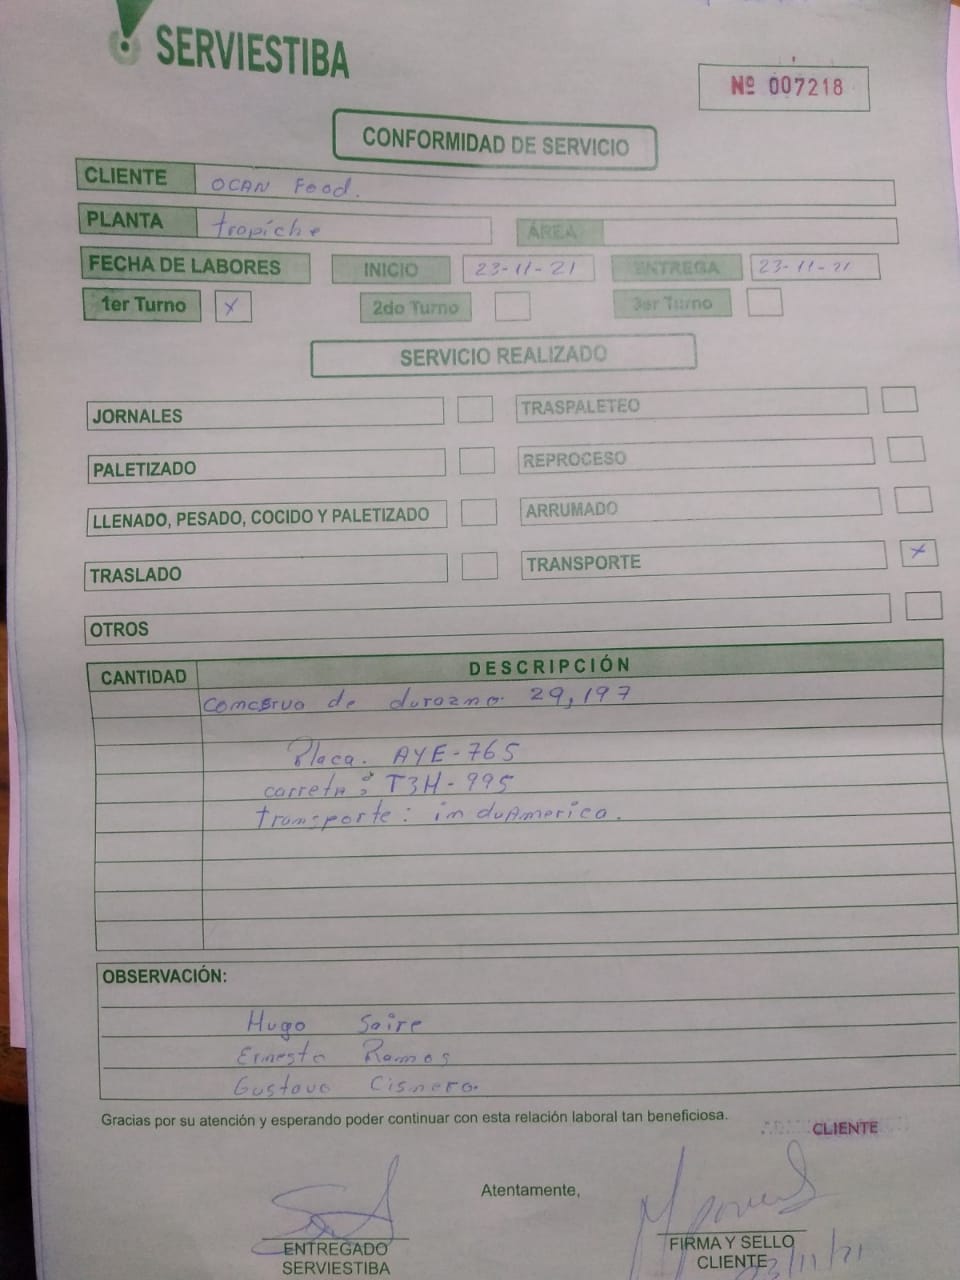 SERVIESTIBA
Nº 007218
CONFORMIDAD DE SERVICIO
CLIENTE OCAN Food.
PLANTA tropiche ÁREA
FECHA DE LABORES INICIO 23-11-21 ENTREGA 23-11-21
1er Turno X 2do Turno 3er Turno
SERVICIO REALIZADO
JORNALES TRASPALETEO
PALETIZADO REPROCESO
LLENADO, PESADO, COCIDO Y PALETIZADO ARRUMADO
TRASLADO TRANSPORTE X
OTROS
CANTIDAD DESCRIPCIÓN
comcerva de durazno. 29,197
Placa. AYE-765
carreta: T3H-995
transporte: induAmerica.
OBSERVACIÓN:
Hugo Saire
Ernesto Ramos
Gustavo Cisnero.
Gracias por su atención y esperando poder continuar con esta relación laboral tan beneficiosa.
CLIENTE
Atentamente,
ENTREGADO FIRMA Y SELLO
SERVIESTIBA CLIENTE
23/11/21